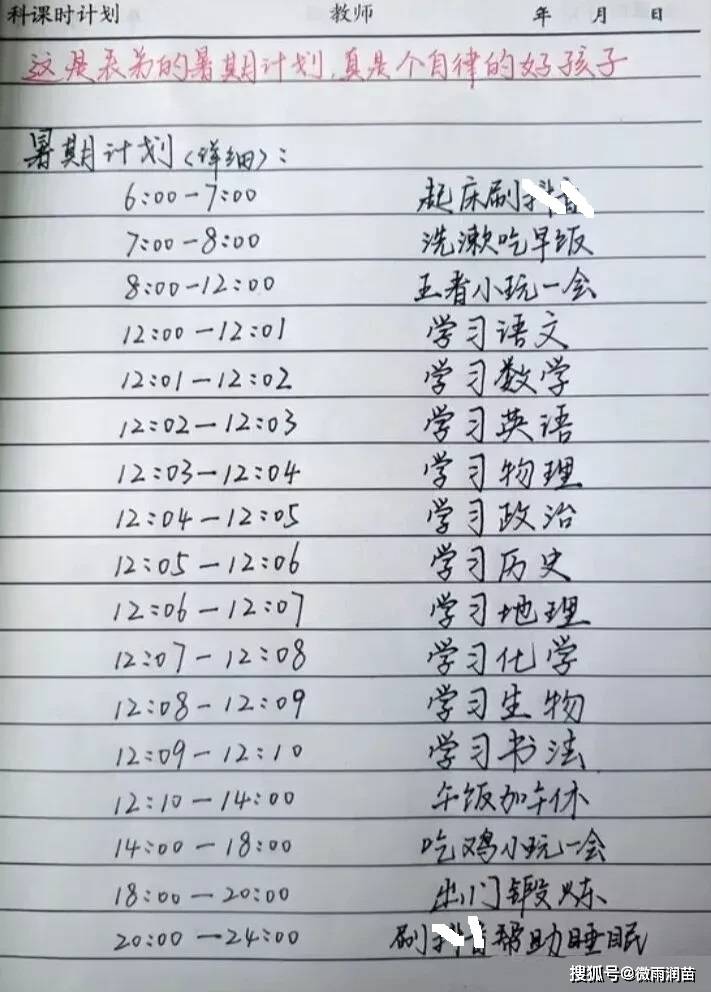 科课时计划 教师 年 月 日
这是表弟的暑期计划,真是个自律的好孩子
暑期计划(详细):
6:00-7:00 起床刷抖音
7:00-8:00 洗漱吃早饭
8:00-12:00 王者小玩一会
12:00-12:01 学习语文
12:01-12:02 学习数学
12:02-12:03 学习英语
12:03-12:04 学习物理
12:04-12:05 学习政治
12:05-12:06 学习历史
12:06-12:07 学习地理
12:07-12:08 学习化学
12:08-12:09 学习生物
12:09-12:10 学习书法
12:10-14:00 午饭加午休
14:00-18:00 吃鸡小玩一会
18:00-20:00 出门锻炼
20:00-24:00 刷抖音帮助睡眠
搜狐号@微雨润苗